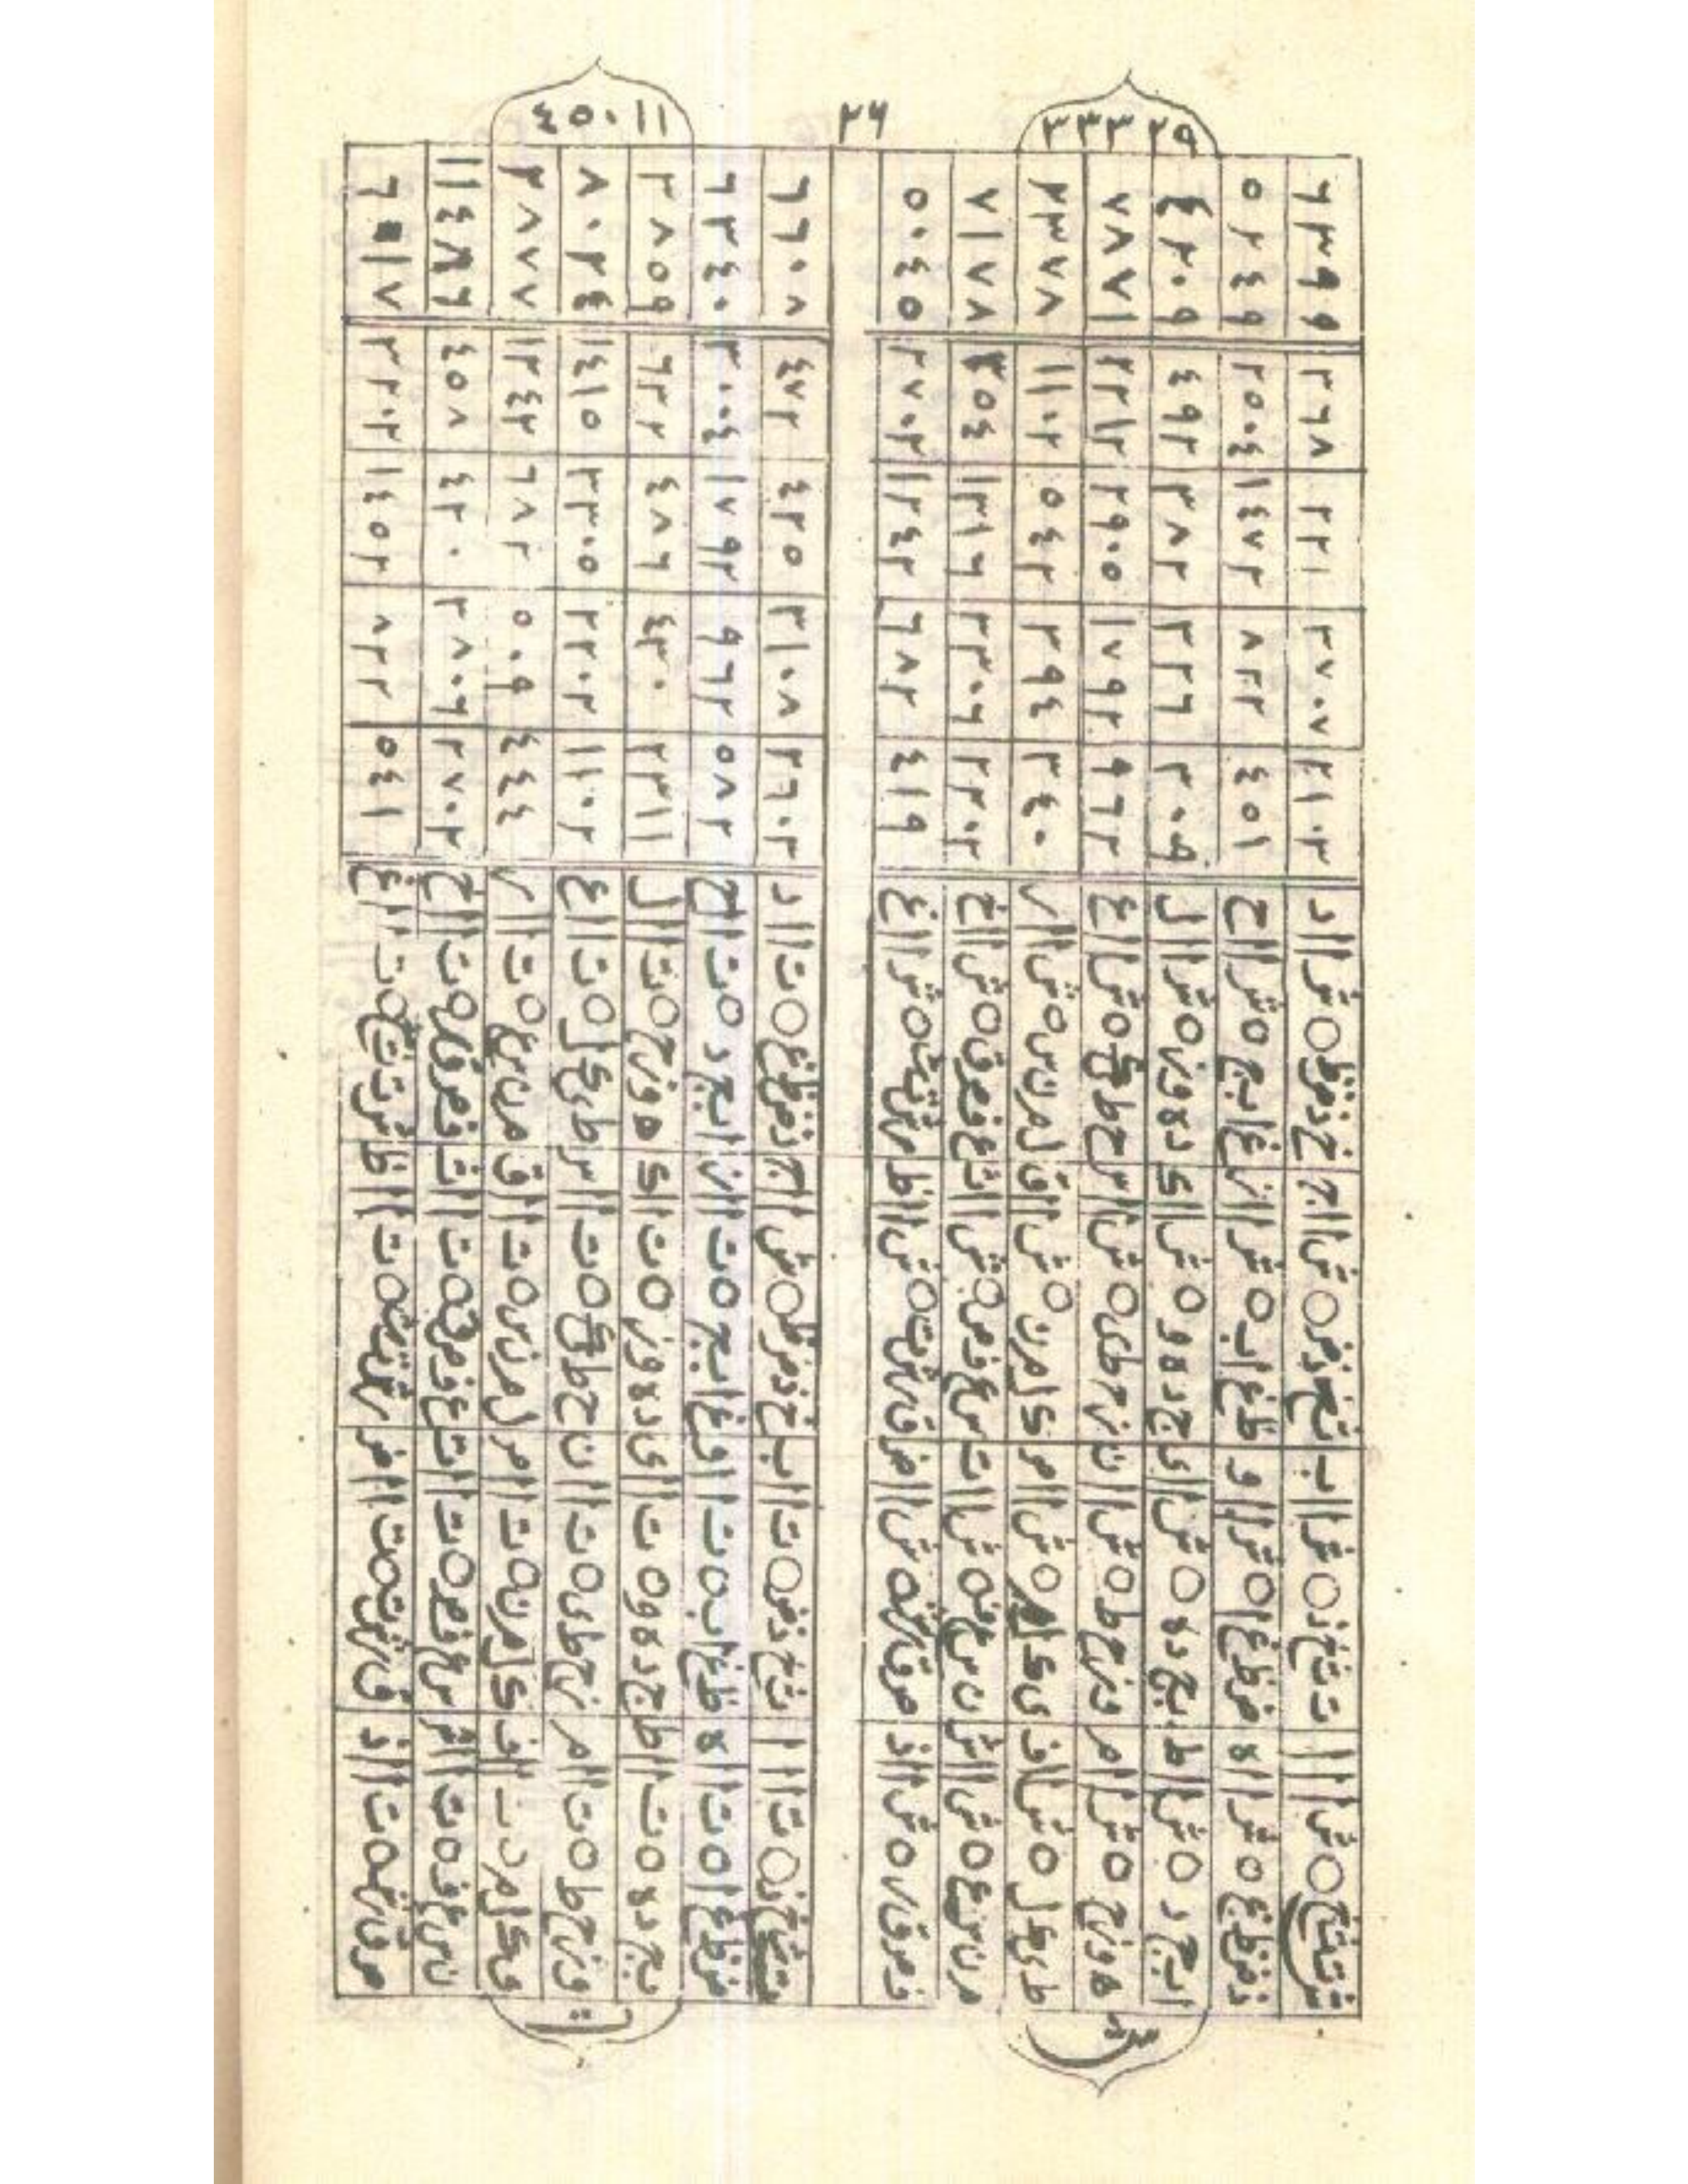 ٢٦
ش
شتثخ ○ ش ا ا ا تثخذ ○ ش ا ا ب ثخذض ○ ش ا ا ج خذضظ ○ ش ا ا د ٣١٠٣ ٢٧٠٧ ٢٢١ ٣٦٨ ٦٣٩٩
ذضظغ ○ ش ا ا ه ضظغا ○ ش ا ا و ظغاب ○ ش ا ا ز غابج ○ ش ا ا ح ٤٥١ ٨٢٢ ١٤٧٢ ٢٥٠٤ ٥٢٤٩
ابجد ○ ش ا ا ط بجده ○ ش ا ا ي جدهو ○ ش ا ا ك دهوز ○ ش ا ا ل ٣٠٠٩ ٣٢٦ ٣٨٢ ٤٩٢ ٤٢٠٩
هوزح ○ ش ا ا م وزحط ○ ش ا ا ن زحطي ○ ش ا ا س حطيك ○ ش ا ا ع ٩٦٢ ١٧٩٢ ٢٩٠٥ ٢٢١٢ ٧٨٧١
طيكل ○ ش ا ا ف يكلم ○ ش ا ا ص كلمن ○ ش ا ا ق لمنس ○ ش ا ا ر ٣٤٠ ٣٩٤ ٥٤٢ ١١٠٢ ٢٣٧٨
منسع ○ ش ا ا ش نسعف ○ ش ا ا ت سعفص ○ ش ا ا ث عفصق ○ ش ا ا خ ٢٣٠٢ ٣٣٠٦ ١٣١٦ ٢٥٤ ٧١٧٨
فصقر ○ ش ا ا ذ صقرش ○ ش ا ا ض قرشت ○ ش ا ا ظ رشتث ○ ش ا ا غ ٤١٩ ٦٨٢ ١٢٤٢ ٢٧٠٢ ٥٠٤٥
ت
تثخذ ○ ت ا ا ا ثخذض ○ ت ا ا ب خذضظ ○ ت ا ا ج ذضظغ ○ ت ا ا د ٢٦٠٣ ٣١٠٨ ٤٢٥ ٤٧٢ ٦٦٠٨
ضظغا ○ ت ا ا ه ظغاب ○ ت ا ا و غابج ○ ت ا ا ز ابجد ○ ت ا ا ح ٥٨٢ ٩٦٢ ١٧٩٢ ٣٠٠٤ ٦٣٤٠
بجده ○ ت ا ا ط جدهو ○ ت ا ا ي دهوز ○ ت ا ا ك هوزح ○ ت ا ا ل ٢٣١١ ٤٤٠ ٤٨٦ ٦٢٢ ٣٨٥٩
وزحط ○ ت ا ا م زحطي ○ ت ا ا ن حطيك ○ ت ا ا س طيكل ○ ت ا ا ع ١١٠٢ ٢٢٠٢ ٣٣٠٥ ١٤١٥ ٨٠٢٤
يكلم ○ ت ا ا ف كلمن ○ ت ا ا ص لمنس ○ ت ا ا ق منسع ○ ت ا ا ر ٤٤٤ ٥٠٩ ٦٨٢ ١٢٤٢ ٢٨٧٧
نسعف ○ ت ا ا ش سعفص ○ ت ا ا ت عفصق ○ ت ا ا ث فصقر ○ ت ا ا خ ٢٧٠٢ ٢٨٠٦ ٤٢٠ ٤٥٨
صقرش ○ ت ا ا ذ قرشت ○ ت ا ا ض رشتث ○ ت ا ا ظ شتثخ ○ ت ا ا غ ٥٤١ ٨٢٢ ١٤٥٢ ٢٢٠٢